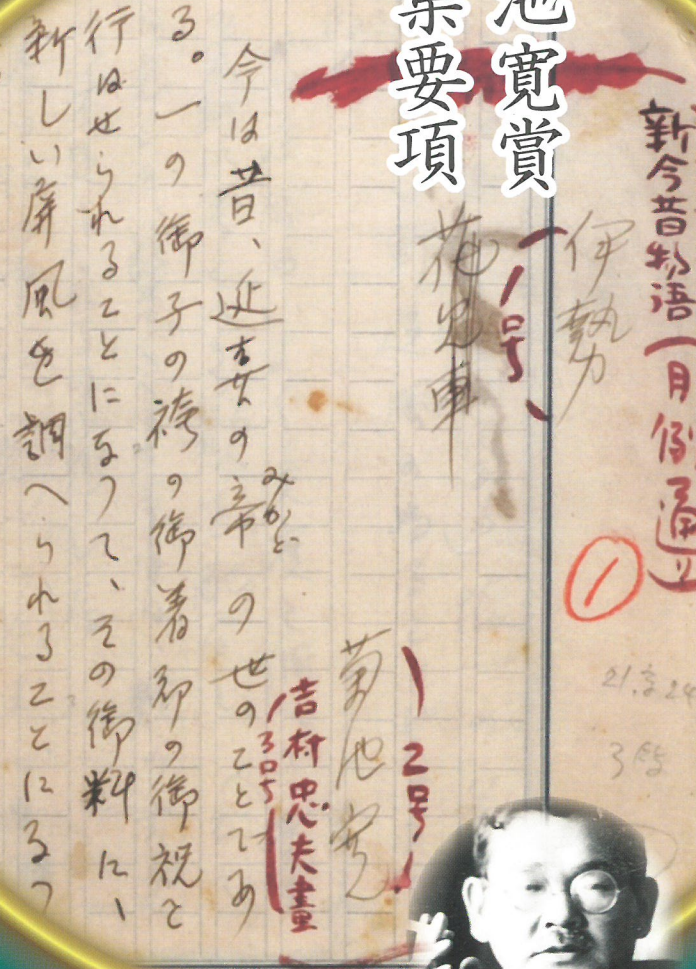 池寛賞
集要項
新今昔物語
①
伊勢
(1号)
花見車
(2号)
菊池寛
吉村忠夫畫
(3号)
今は昔、延喜の帝の世のことであ
みかど
る。一の御子の袴の御着初の御祝と
行はせられることになつて、その御料に、
新しい屏風を調へられることになつ